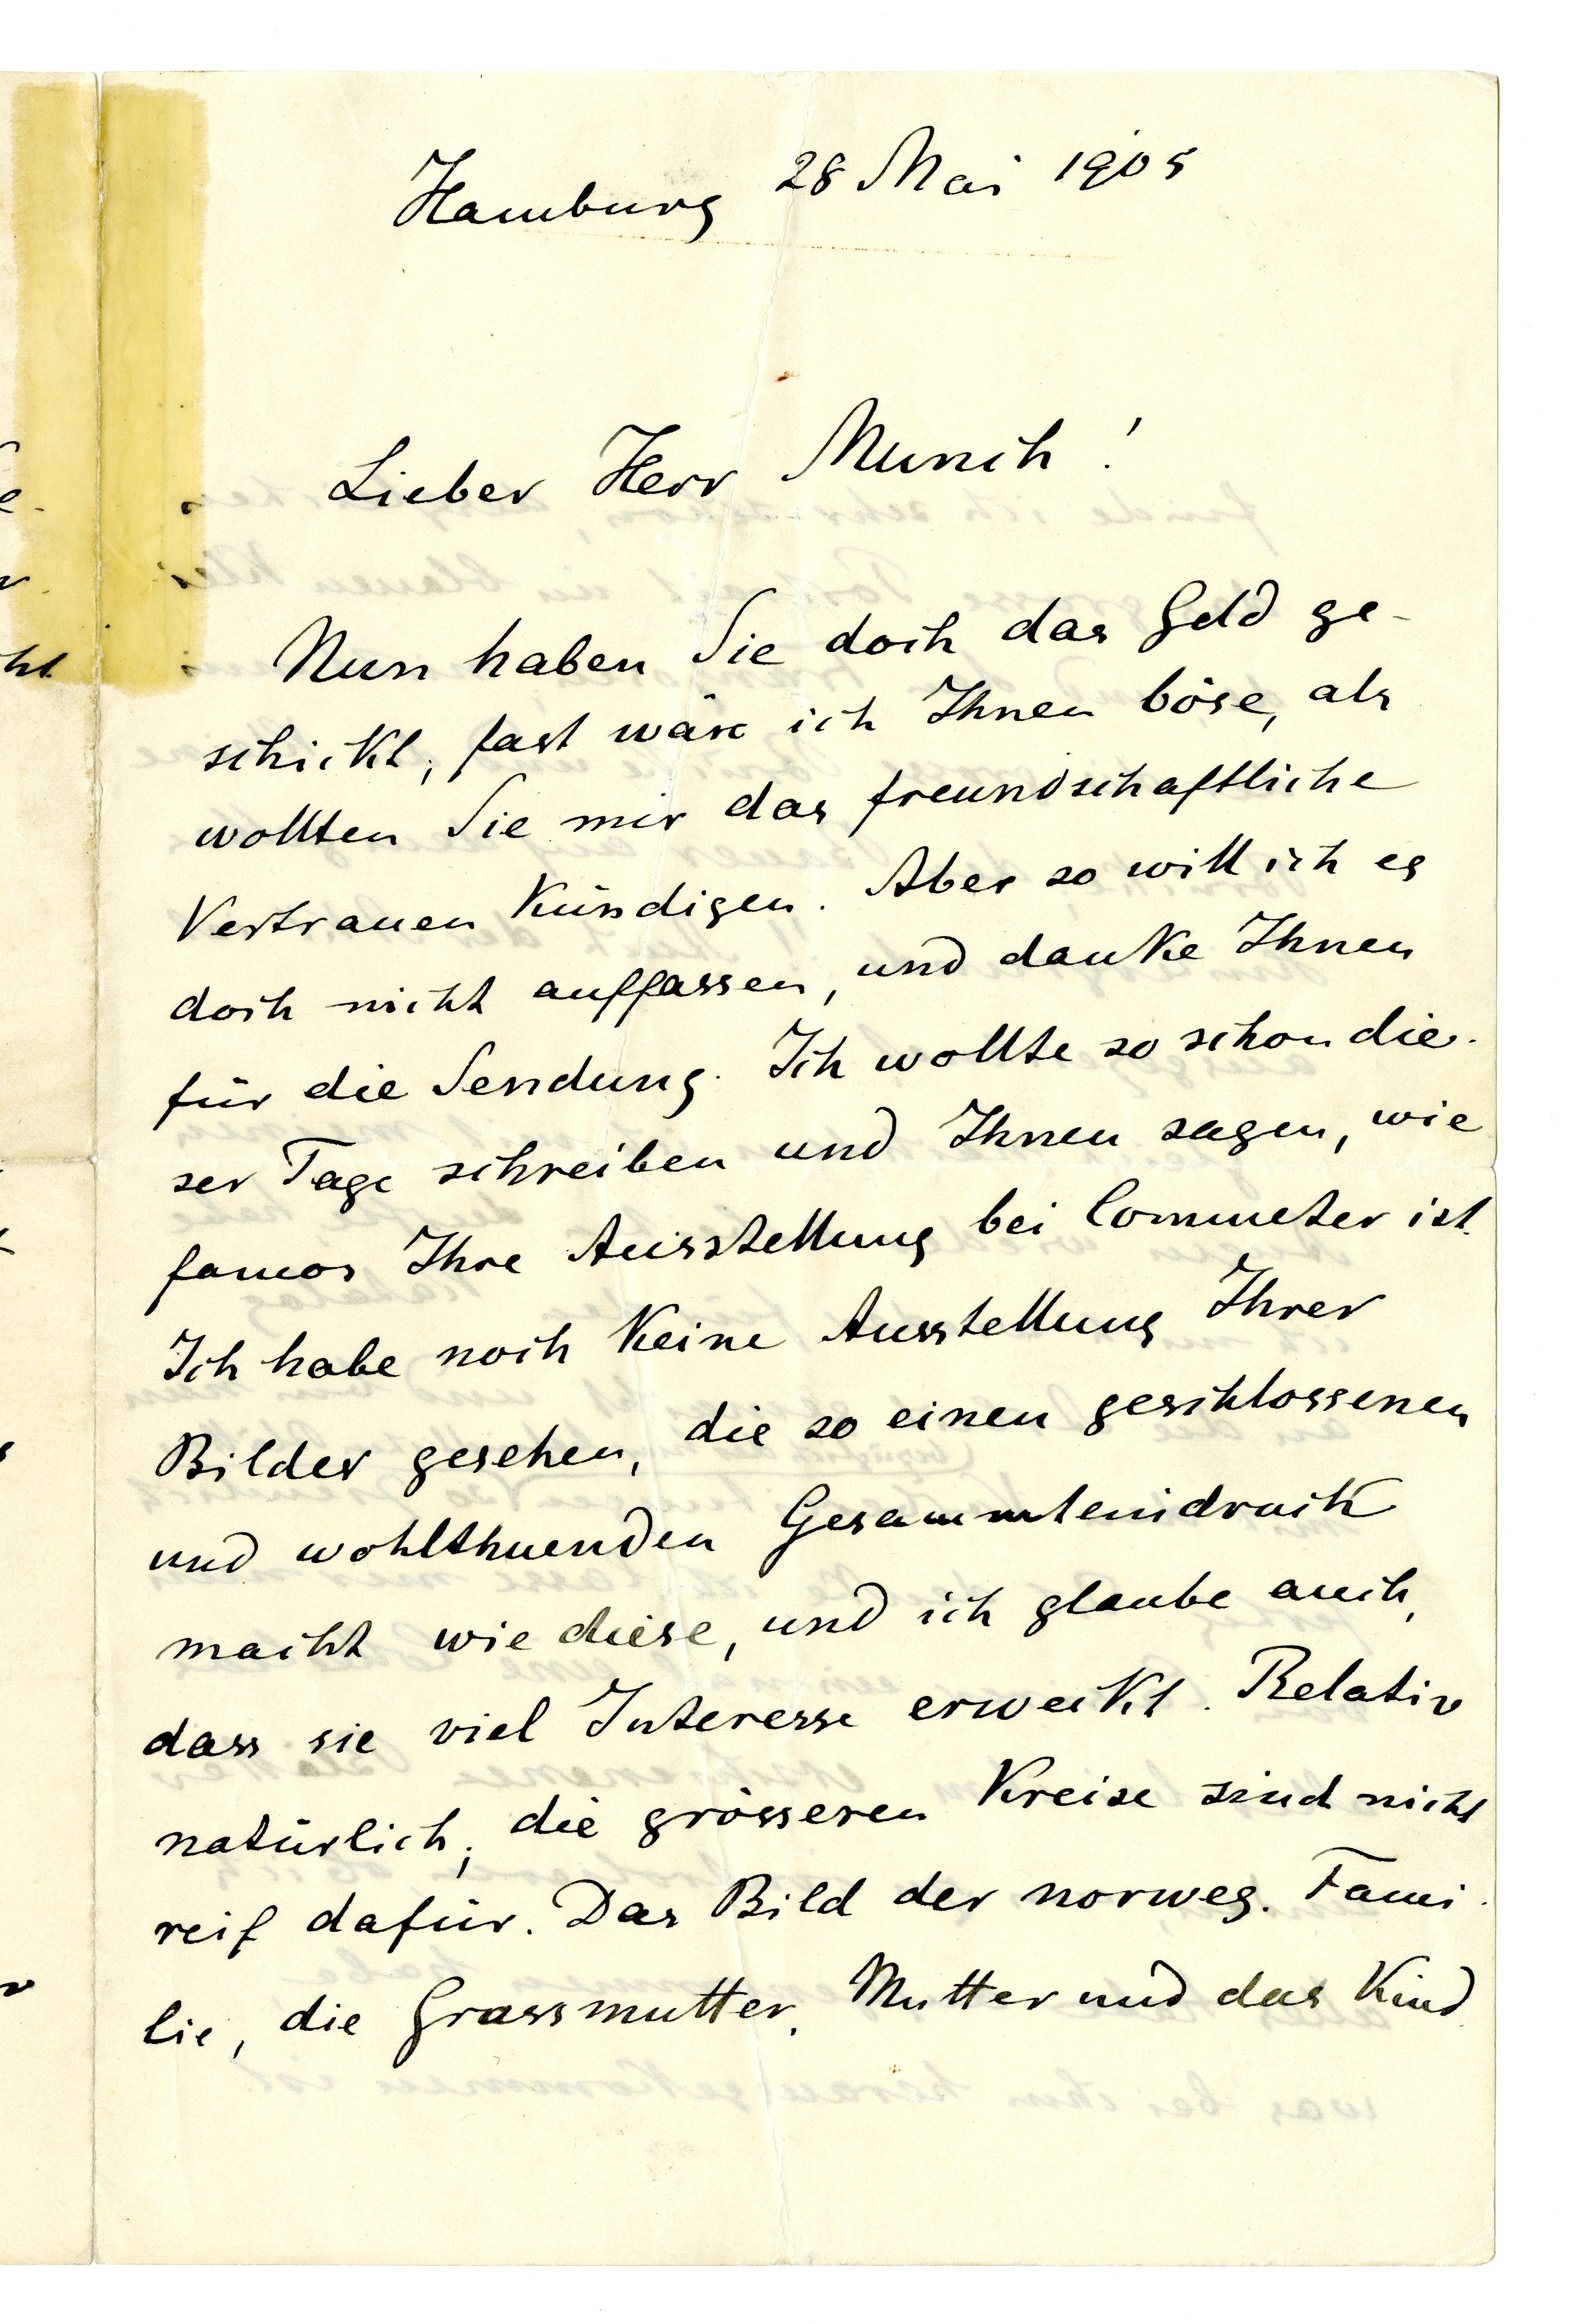 Hamburg 28 Mai 1905
Lieber Herr Munch!
Nun haben Sie doch das Geld ge-
schickt, fast wäre ich Ihnen böse, als
wollten Sie mir das freundschaftliche
Vertrauen kündigen. Aber so will ich es
doch nicht auffassen, und danke Ihnen
für die Sendung. Ich wollte so schon die-
ser Tage schreiben und Ihnen sagen, wie
famos Ihre Ausstellung bei Commeter ist.
Ich habe noch keine Ausstellung Ihrer
Bilder gesehen, die so einen geschlossenen
und wohlthuenden Gesammteindruck
macht wie diese, und ich glaube auch,
dass sie viel Interesse erweckt. Relativ
natürlich, die grösseren Kreise sind nicht
reif dafür. Das Bild der norweg. Fami-
lie, die Grossmutter, Mutter und das Kind